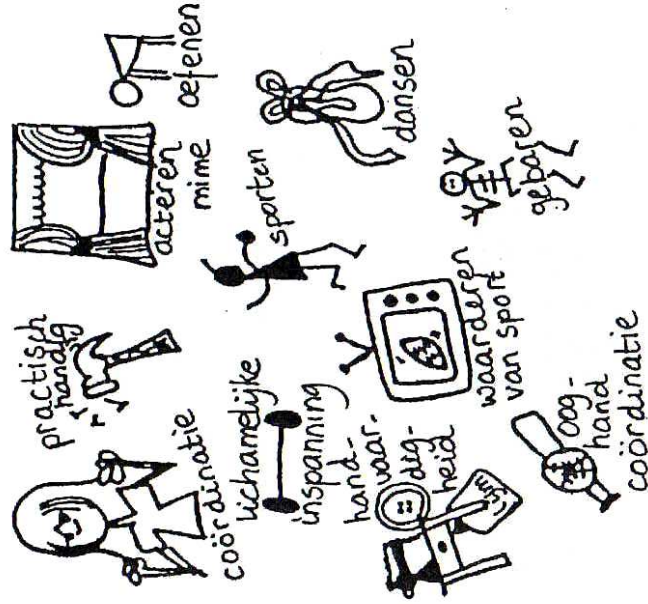 practisch
handig
coördinatie
acteren
mime
oefenen
lichamelijke
inspanning
sporten
dansen
hand-
vaar-
dig-
heid
waarderen
van sport
gebaren
oog-
hand
coördinatie